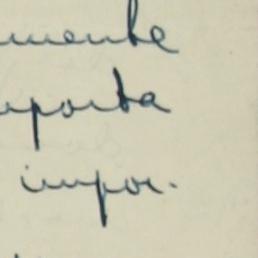 umente
mporta
impor.